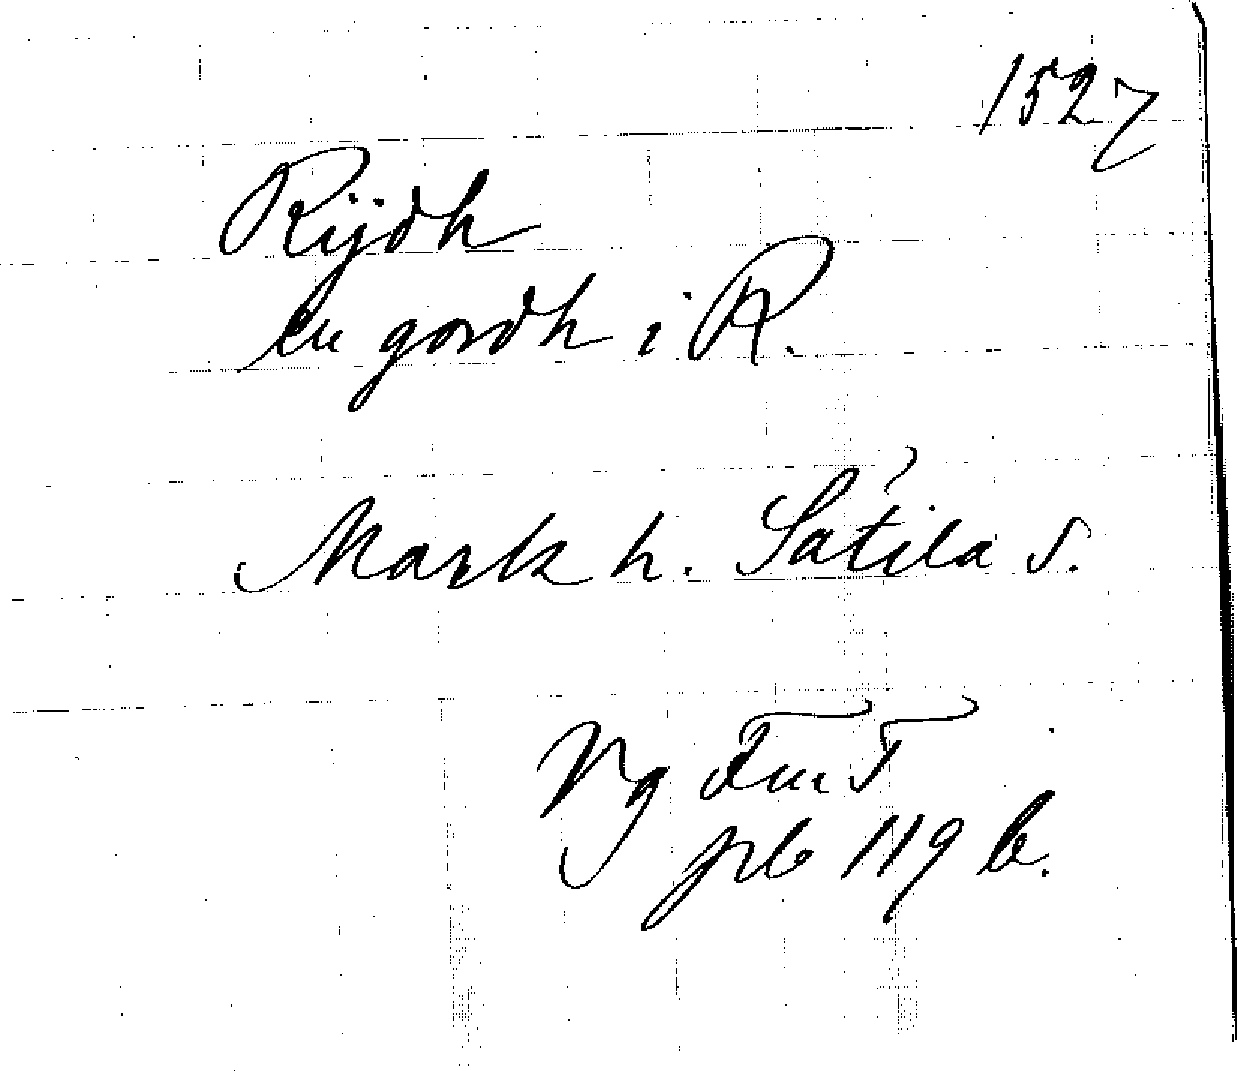 1527
Rijdh
en gordh i R.
Mark h. Sätila s.
Vg FmT
pb 119 b.